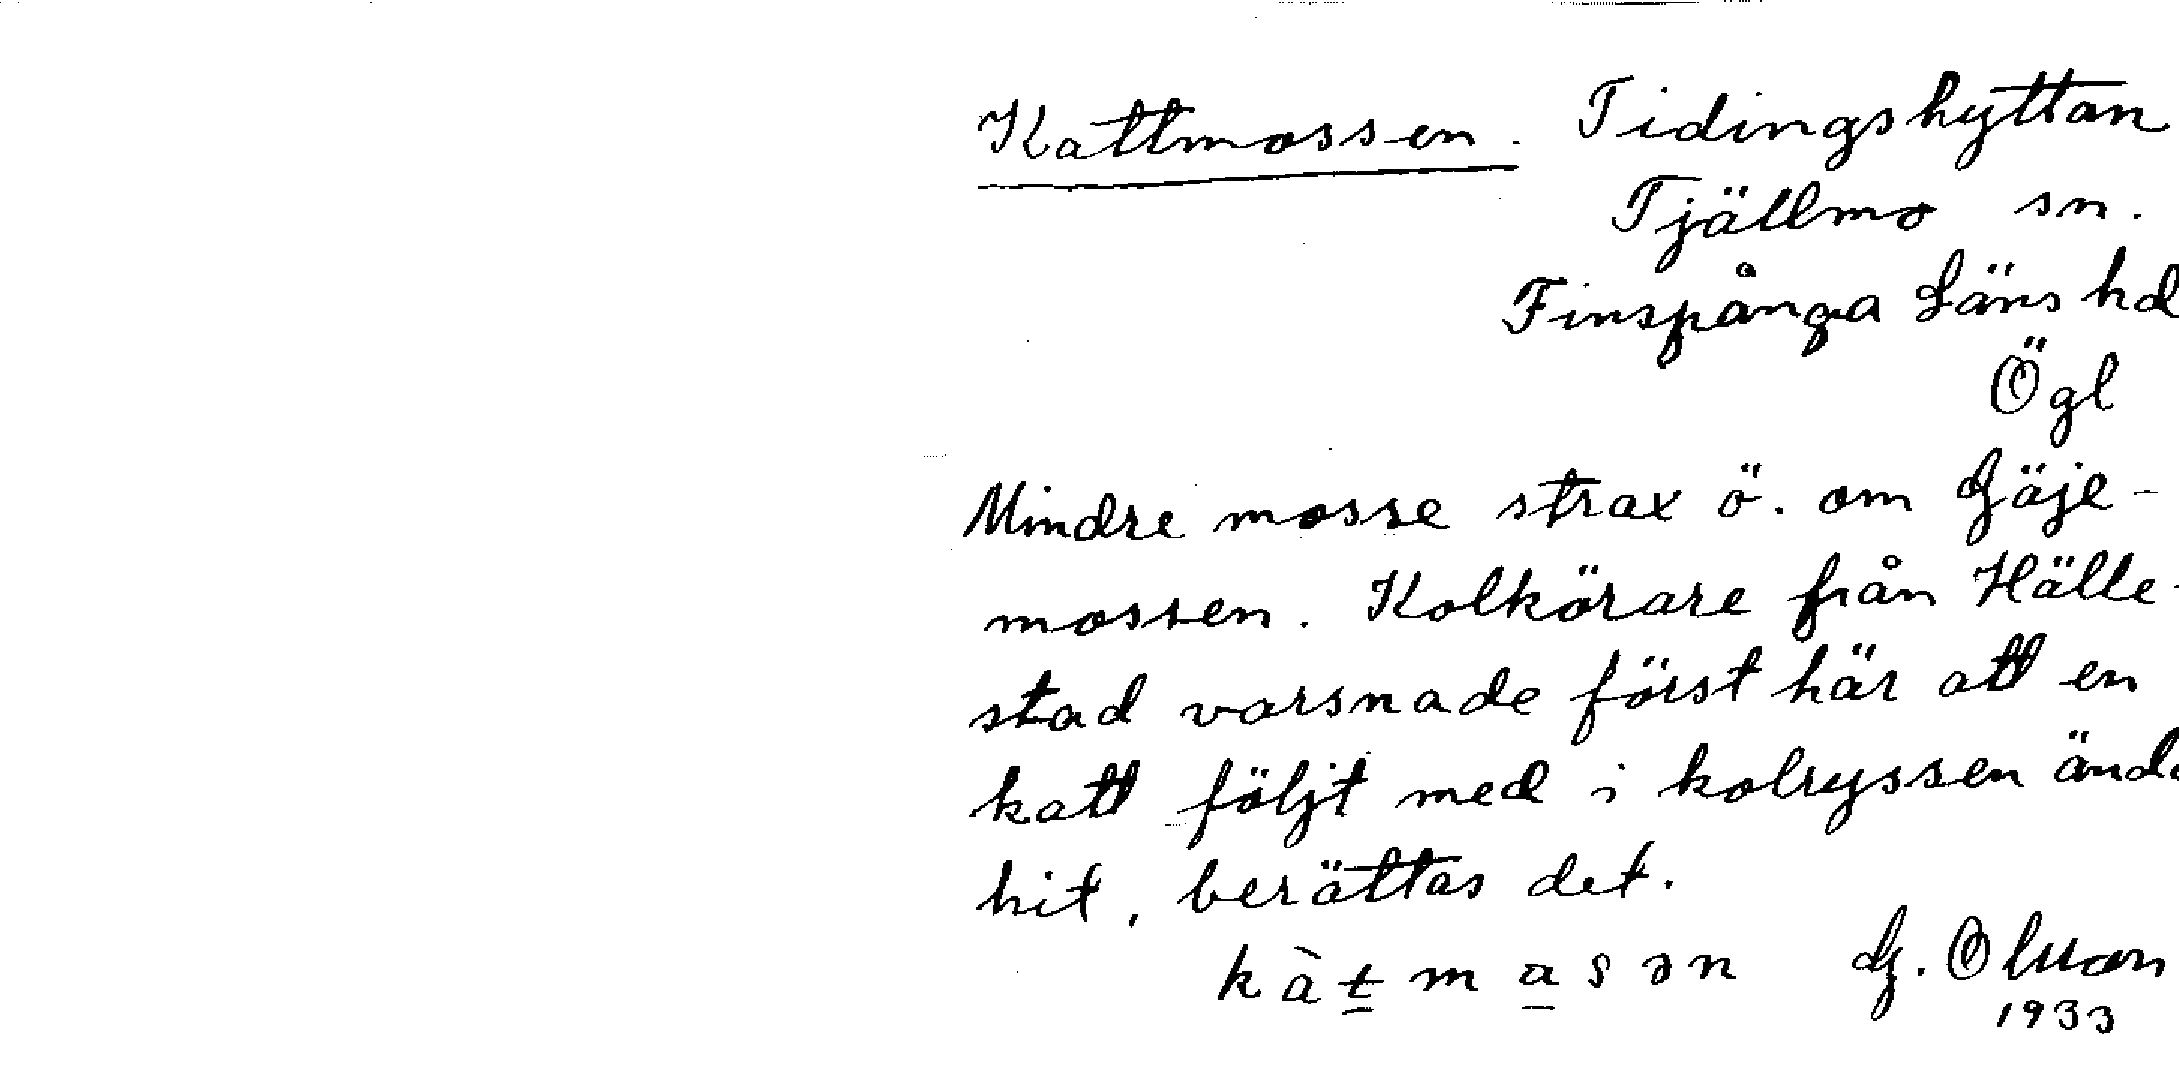 Kattmossen. Tidingshyttan
Tjällmo sn.
Finspånga Läns hd
Ögl
Mindre mosse strax ö. om Gäje-
mossen. Kolkörare från Hälle-
stad varsnade först här att en
katt följt med i kolryssen ända
hit, berättas det.
kàt̲ma̲sən G. Olsson
1933